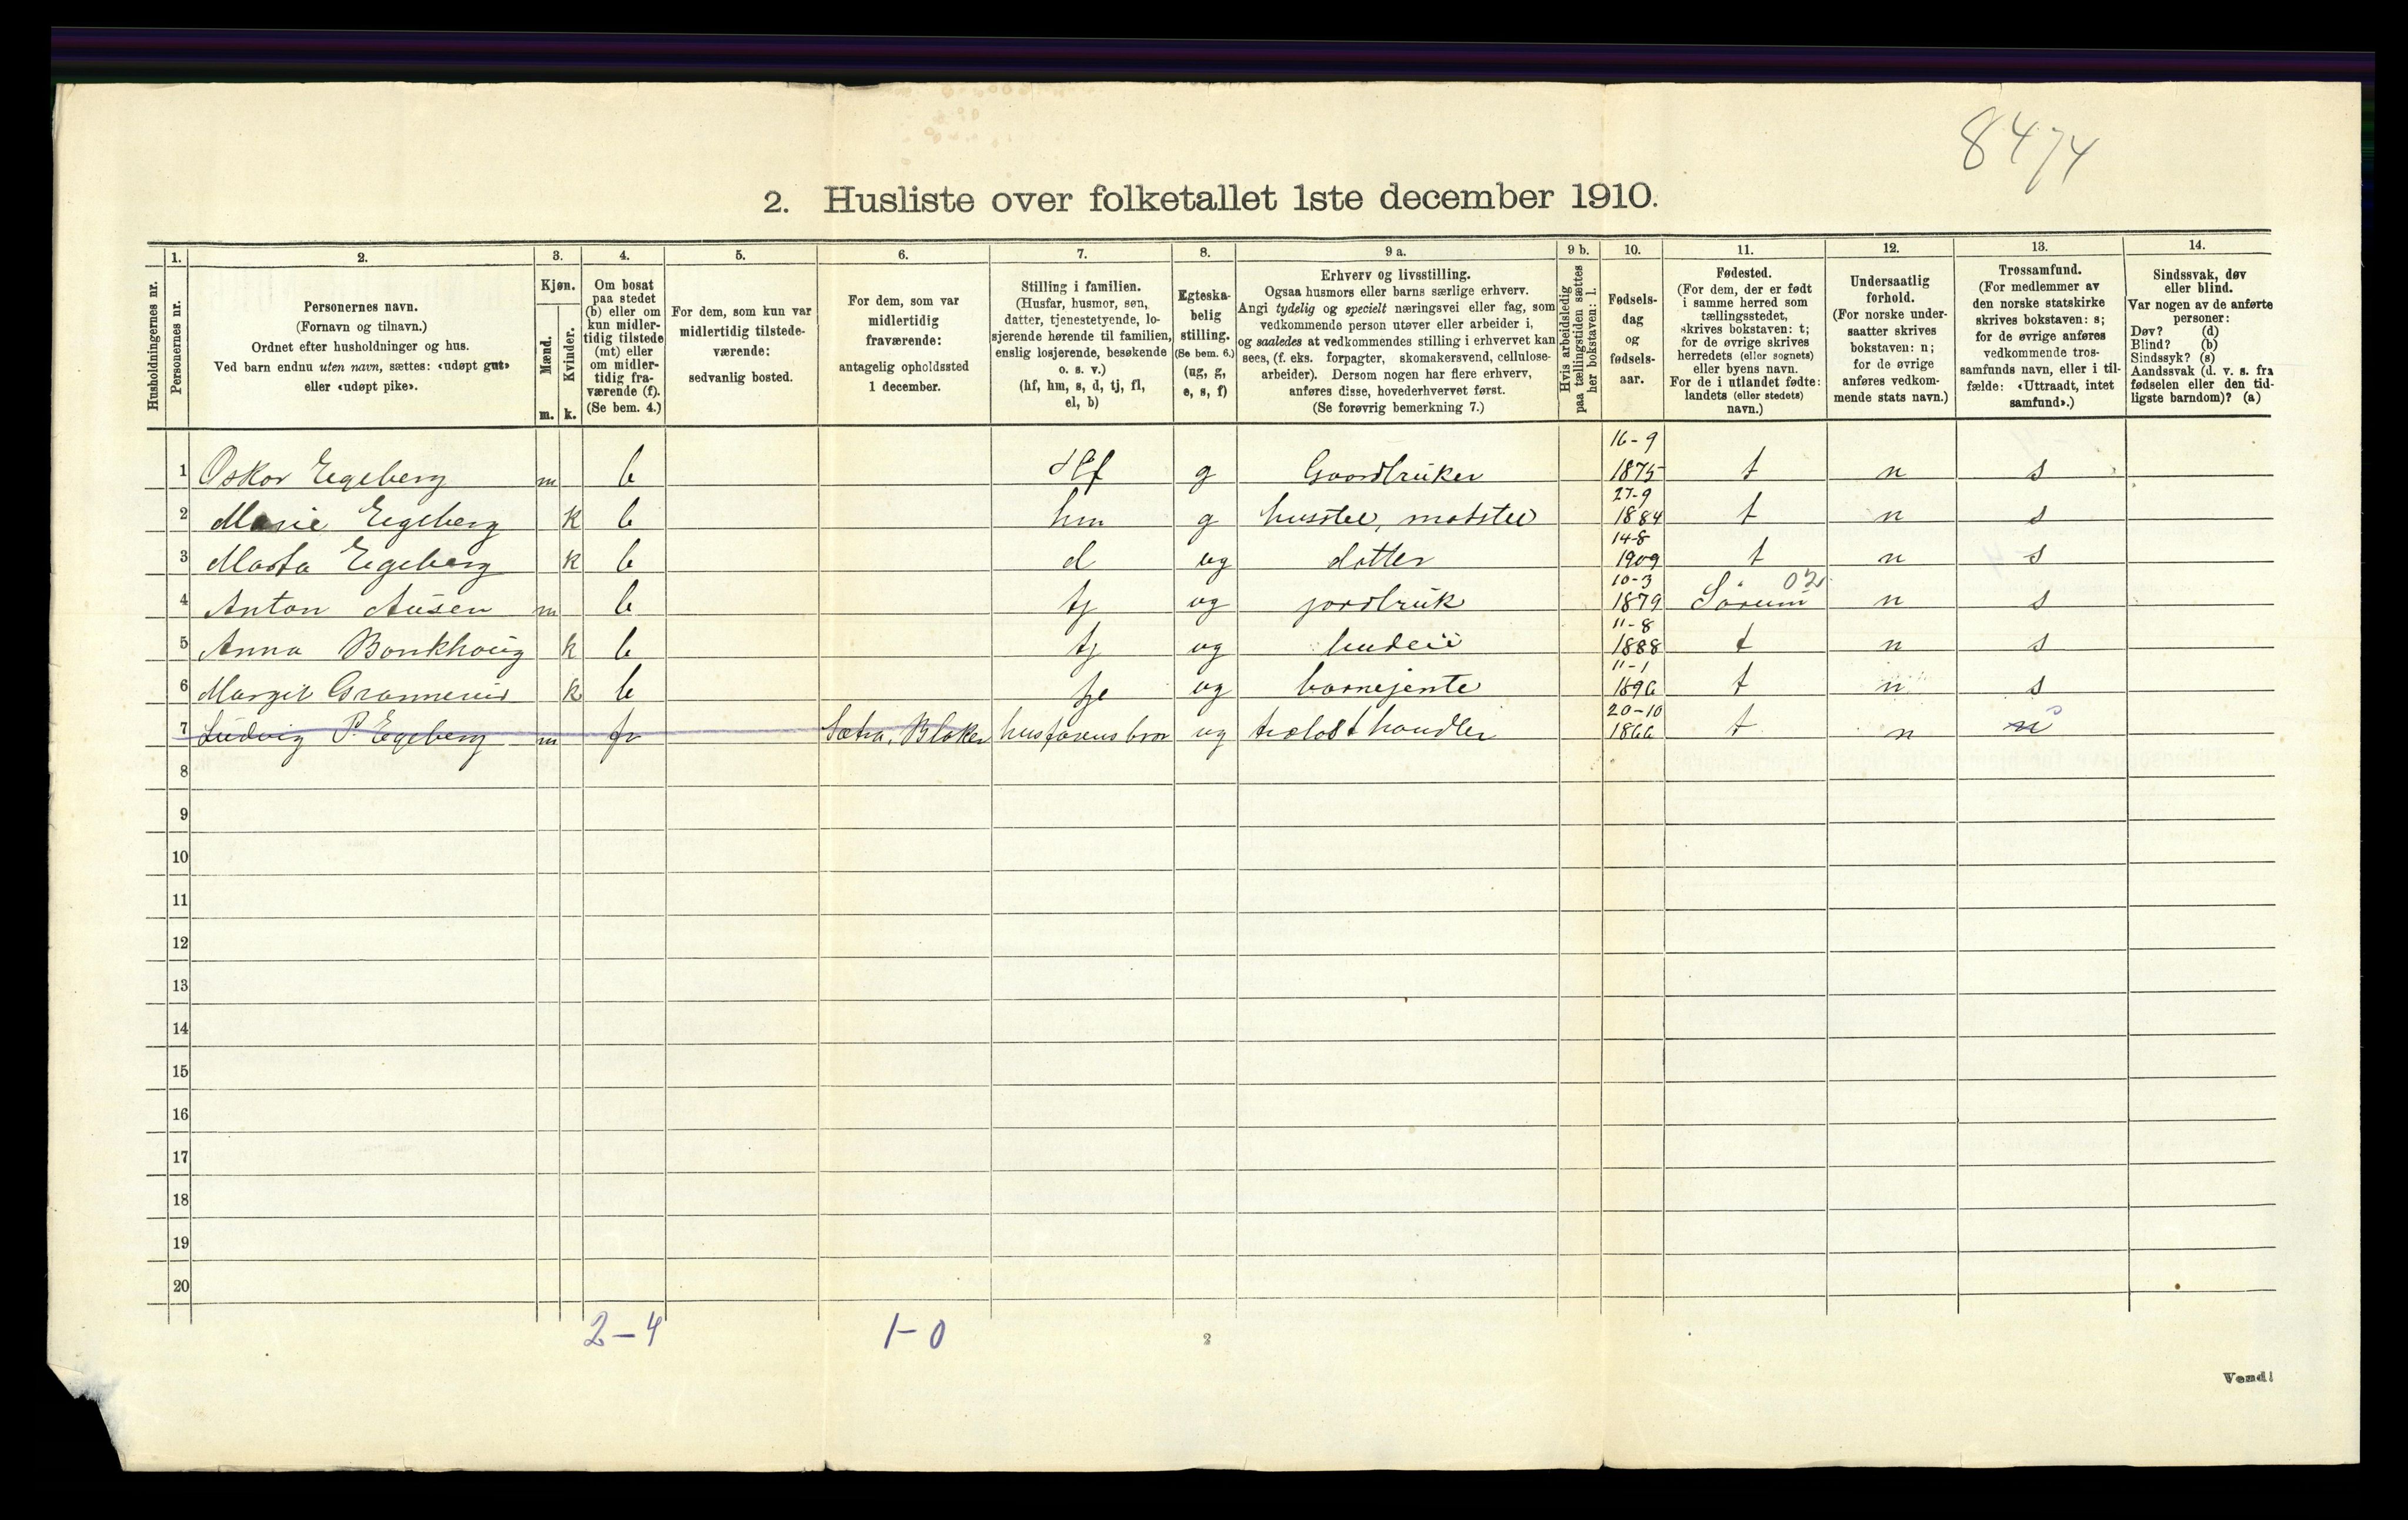 8474
2. Husliste over folketallet 1ste december 1910.
Husholdningernes nr.
1.
Personernes nr.
2.
Personernes navn.
(Fornavn og tilnavn.)
Ordnet efter husholdninger og hus.
Ved barn endnu uten navn, sættes: «udøpt gut»
eller «udøpt pike».
3.
Kjøn.
Mænd.
Kvinder.
m. k.
4.
Om bosat
paa stedet
(b) eller om
kun midler-
tidig tilstede
(mt) eller
om midler-
tidig fra-
værende (f).
(Se bem. 4.)
5.
For dem, som kun var
midlertidig tilstede-
værende:
sedvanlig bosted.
6.
For dem, som var
midlertidig
fraværende:
antagelig opholdssted
1 december.
7.
Stilling i familien.
(Husfar, husmor, søn,
datter, tjenestetyende, lo-
sjerende hørende til familien,
enslig losjerende, besøkende
o. s. v.)
(hf, hm, s, d, tj, fl,
el, b)
8.
Egteska-
belig
stilling.
(Se bem. 6.)
(ug, g,
e, s, f)
9 a.
Erhverv og livsstilling.
Ogsaa husmors eller barns særlige erhverv.
Angi tydelig og specielt næringsvei eller fag, som
vedkommende person utøver eller arbeider i,
og saaledes at vedkommendes stilling i erhvervet kan
sees, (f. eks. forpagter, skomakersvend, cellulose-
arbeider). Dersom nogen har flere erhverv,
anføres disse, hovederhvervet først.
(Se forøvrig bemerkning 7.)
9 b.
Hvis arbeidsledig
paa tællingstiden sættes
her bokstaven: l.
10.
Fødsels-
dag
og
fødsels-
aar.
11.
Fødested.
(For dem, der er født
i samme herred som
tællingsstedet,
skrives bokstaven: t;
for de øvrige skrives
herredets (eller sognets)
eller byens navn.
For de i utlandet fødte:
landets (eller stedets)
navn.)
12.
Undersaatlig
forhold.
(For norske under-
saatter skrives
bokstaven: n;
for de øvrige
anføres vedkom-
mende stats navn.)
13.
Trossamfund.
(For medlemmer av
den norske statskirke
skrives bokstaven: s;
for de øvrige anføres
vedkommende tros-
samfunds navn, eller i til-
fælde: «Uttraadt, intet
samfund».)
14.
Sindssvak, døv
eller blind.
Var nogen av de anførte
personer:
Døv? (d)
Blind? (b)
Sindssyk? (s)
Aandssvak (d. v. s. fra
fødselen eller den tid-
ligste barndom)? (a)
1 Oskar Egeberg m b Hf g Gaardbruker 16-9 1875 t n s
2 Marie Egeberg k b hm g husstel, matstel 27-9 1884 t n s
3 Marta Egeberg k b d ug datter 14-8 1909 t n s
4 Anton Ausen m b tj ug jordbruk 10-3 1879 Sørum 02 n s
5 Anna Bonkhoug k b tj ug budeie 11-8 1888 t n s
6 Margit k b tje ug barnejente 11-1 1896 t n s
7 Ludvig P. Egeberg m fr Sætra, Blaker husfarens bror ug trælasthandler 20-10 1866 t n n s
8
9
10
11
12
13
14
15
16
17
18
19
20
2-4 1-0
2
Vend!